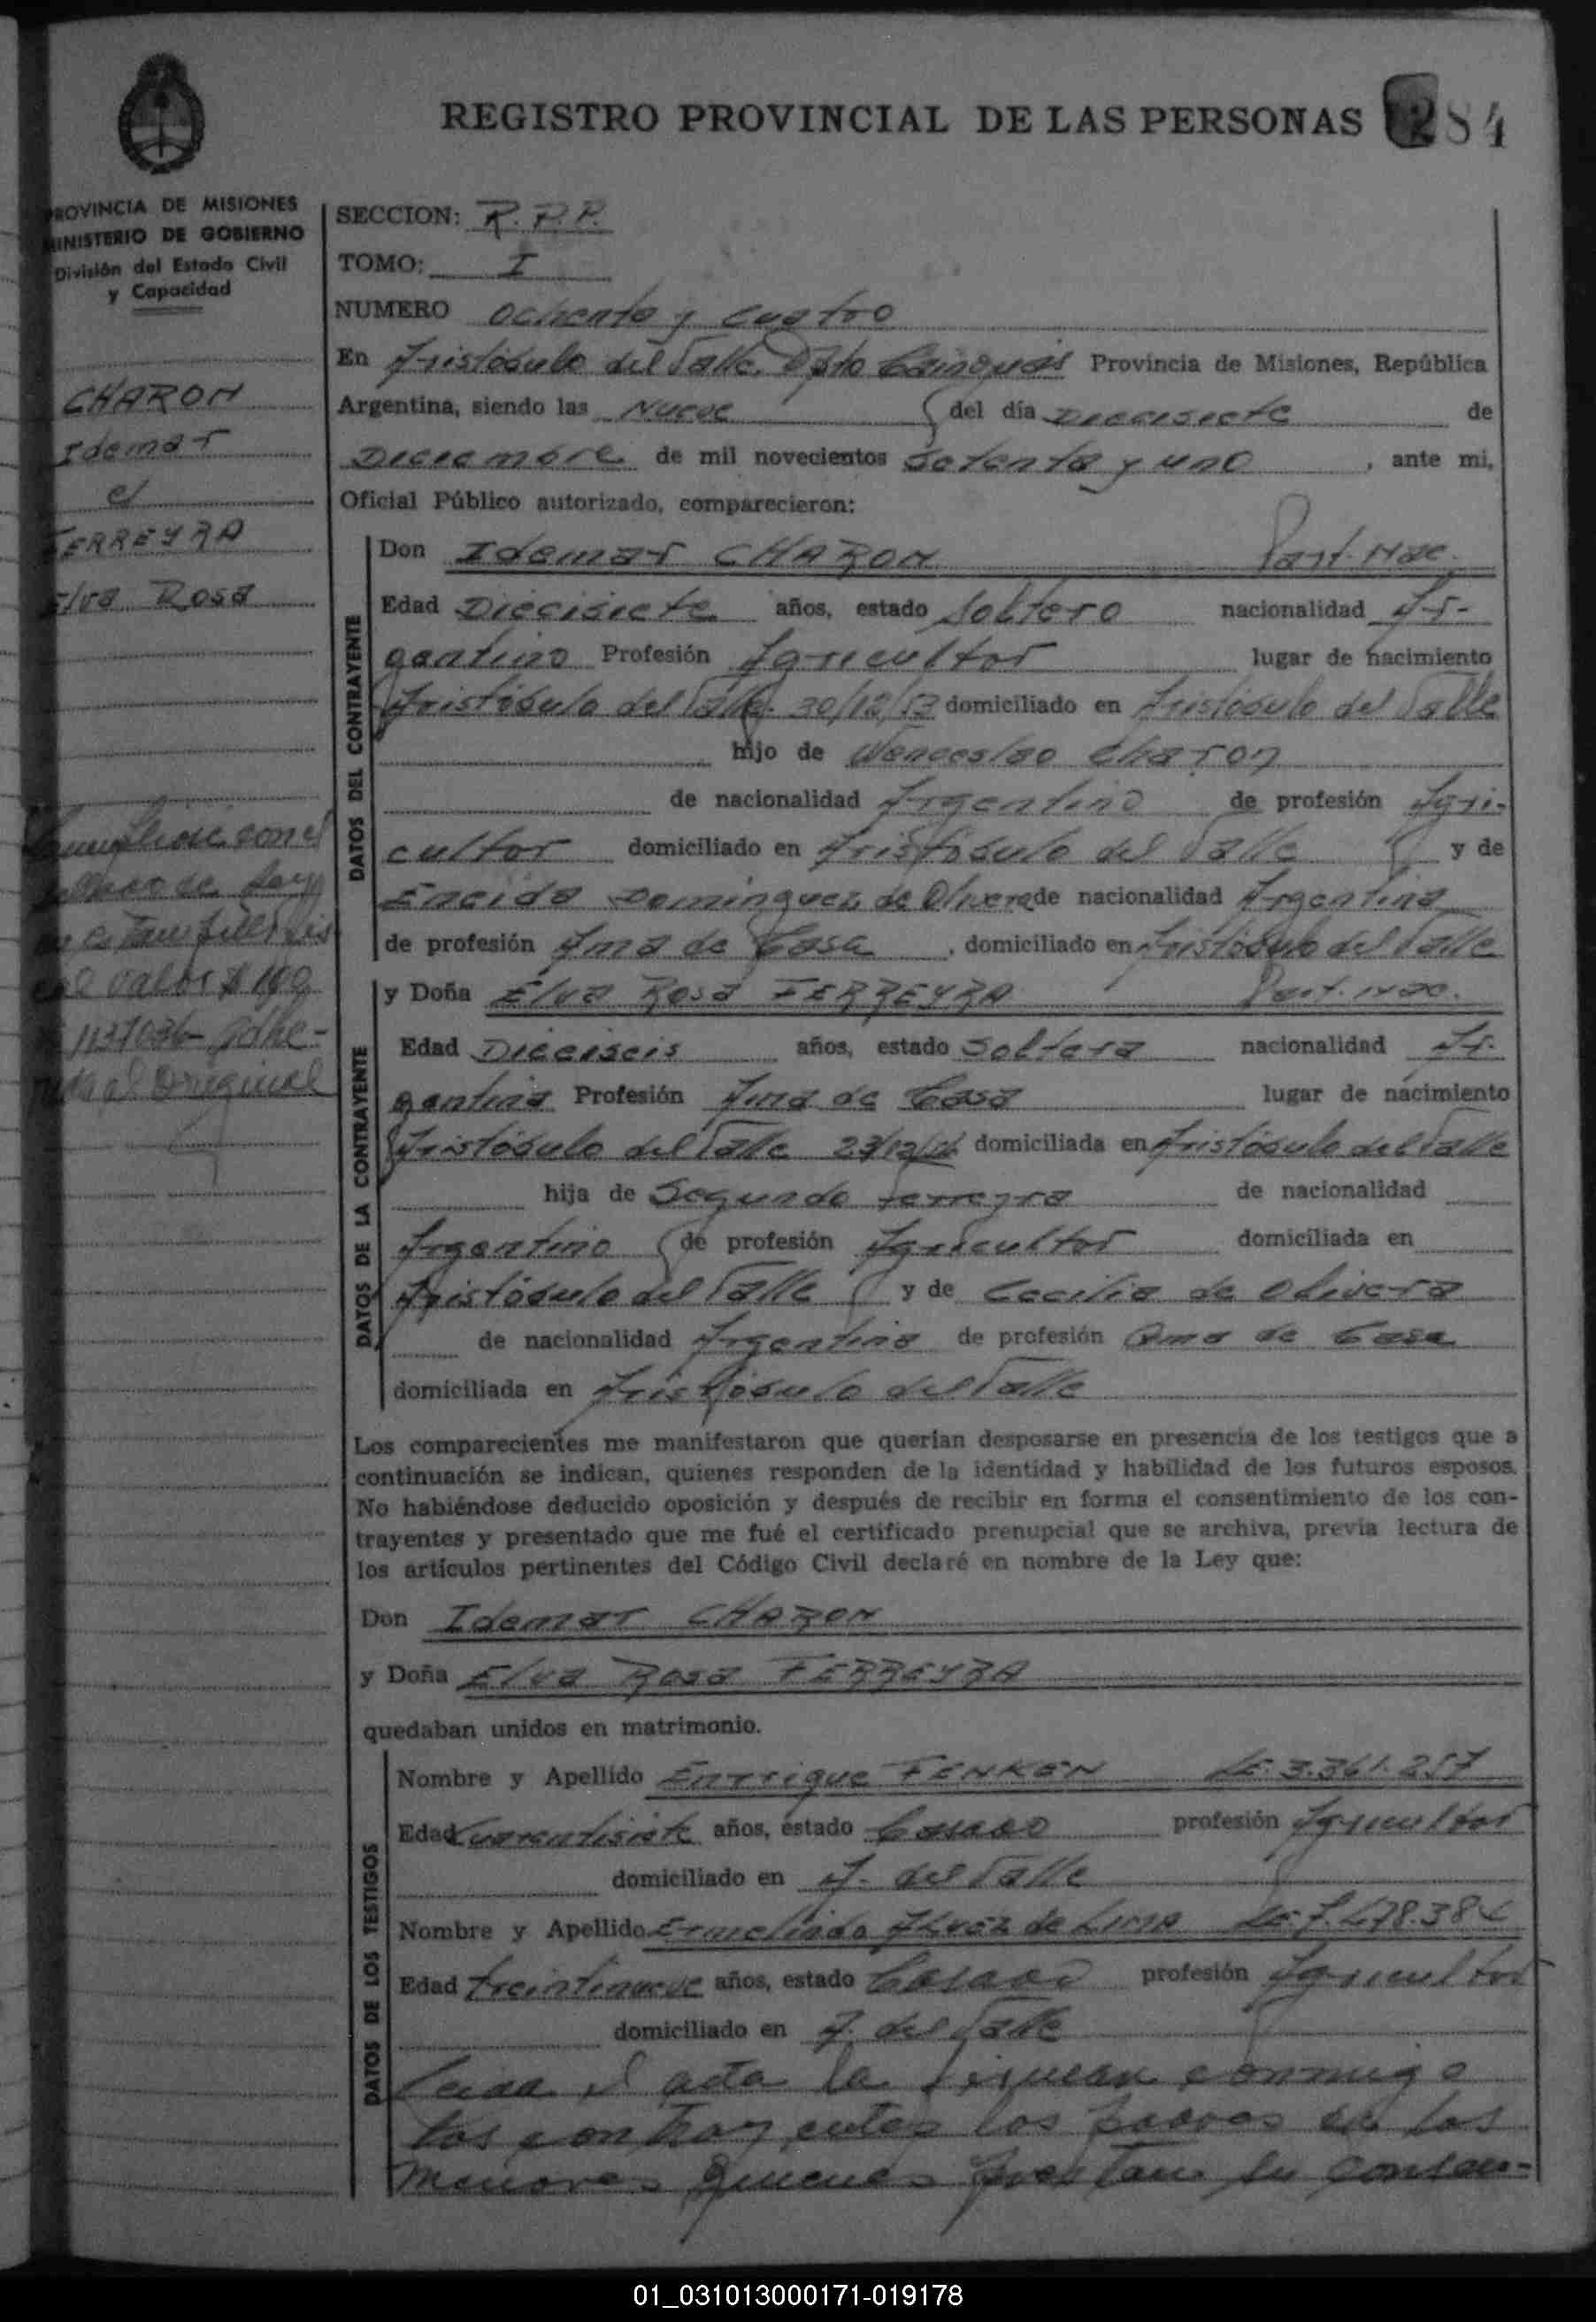 REGISTRO PROVINCIAL DE LAS PERSONAS 284
PROVINCIA DE MISIONES
MINISTERIO DE GOBIERNO
División del Estado Civil
y Capacidad
SECCION: R.P.P.
TOMO: I
NUMERO Ochenta y cuatro
En Aristóbulo del Valle, Dpto Cainguás Provincia de Misiones, República
Argentina, siendo las Nueve del día Diecisiete de
Diciembre de mil novecientos Setenta y uno, ante mi,
Oficial Público autorizado, comparecieron:
CHARON
Idemar
c/
FERREYRA
Elva Rosa
DATOS DEL CONTRAYENTE
Don Idemar CHARON Part. Nac.
Edad Diecisiete años, estado Soltero nacionalidad Ar-
gentino Profesión Agricultor lugar de nacimiento
Aristóbulo del Valle 30/12/53 domiciliado en Aristóbulo del Valle
hijo de Wenceslao Charon
de nacionalidad Argentino de profesión Agri-
cultor domiciliado en Aristóbulo del Valle y de
Eneida Dominguez de Olivera de nacionalidad Argentina
de profesión Ama de Casa, domiciliado en Aristóbulo del Valle
con el
de Ley
valor $ 100
1137036 adhe-
al Original
DATOS DE LA CONTRAYENTE
y Doña Elva Rosa FERREYRA Part. Nac.
Edad Dieciseis años, estado Soltera nacionalidad Ar-
gentina Profesión Ama de Casa lugar de nacimiento
Aristóbulo del Valle 23/12/ domiciliada en Aristóbulo del Valle
hija de Segundo Ferreyra de nacionalidad
Argentino de profesión Agricultor domiciliada en
Aristóbulo del Valle y de Cecilia de Olivera
de nacionalidad Argentina de profesión Ama de Casa
domiciliada en Aristóbulo del Valle
Los comparecientes me manifestaron que querían desposarse en presencia de los testigos que a
continuación se indican, quienes responden de la identidad y habilidad de los futuros esposos.
No habiéndose deducido oposición y después de recibir en forma el consentimiento de los con-
trayentes y presentado que me fué el certificado prenupcial que se archiva, previa lectura de
los artículos pertinentes del Código Civil declaré en nombre de la Ley que:
Don Idemar CHARON
y Doña Elva Rosa FERREYRA
quedaban unidos en matrimonio.
DATOS DE LOS TESTIGOS
Nombre y Apellido Enrrique FENKEN LE. 3.361.257
Edad Cuarentisiete años, estado Casado profesión Agricultor
domiciliado en A. del Valle
Nombre y Apellido Ermelindo ALVEZ de LIMA LE. 7.478.384
Edad treintinueve años, estado Casado profesión Agricultor
domiciliado en A. del Valle
Leida el acta la firman conmigo
los contrayentes los padres de los
menores quienes prestan su consen-
01_031013000171-019178